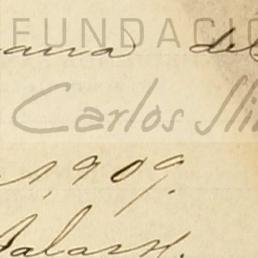 FUNDACIÓ
ana del
Carlos Sli
1,909.
Salazar.